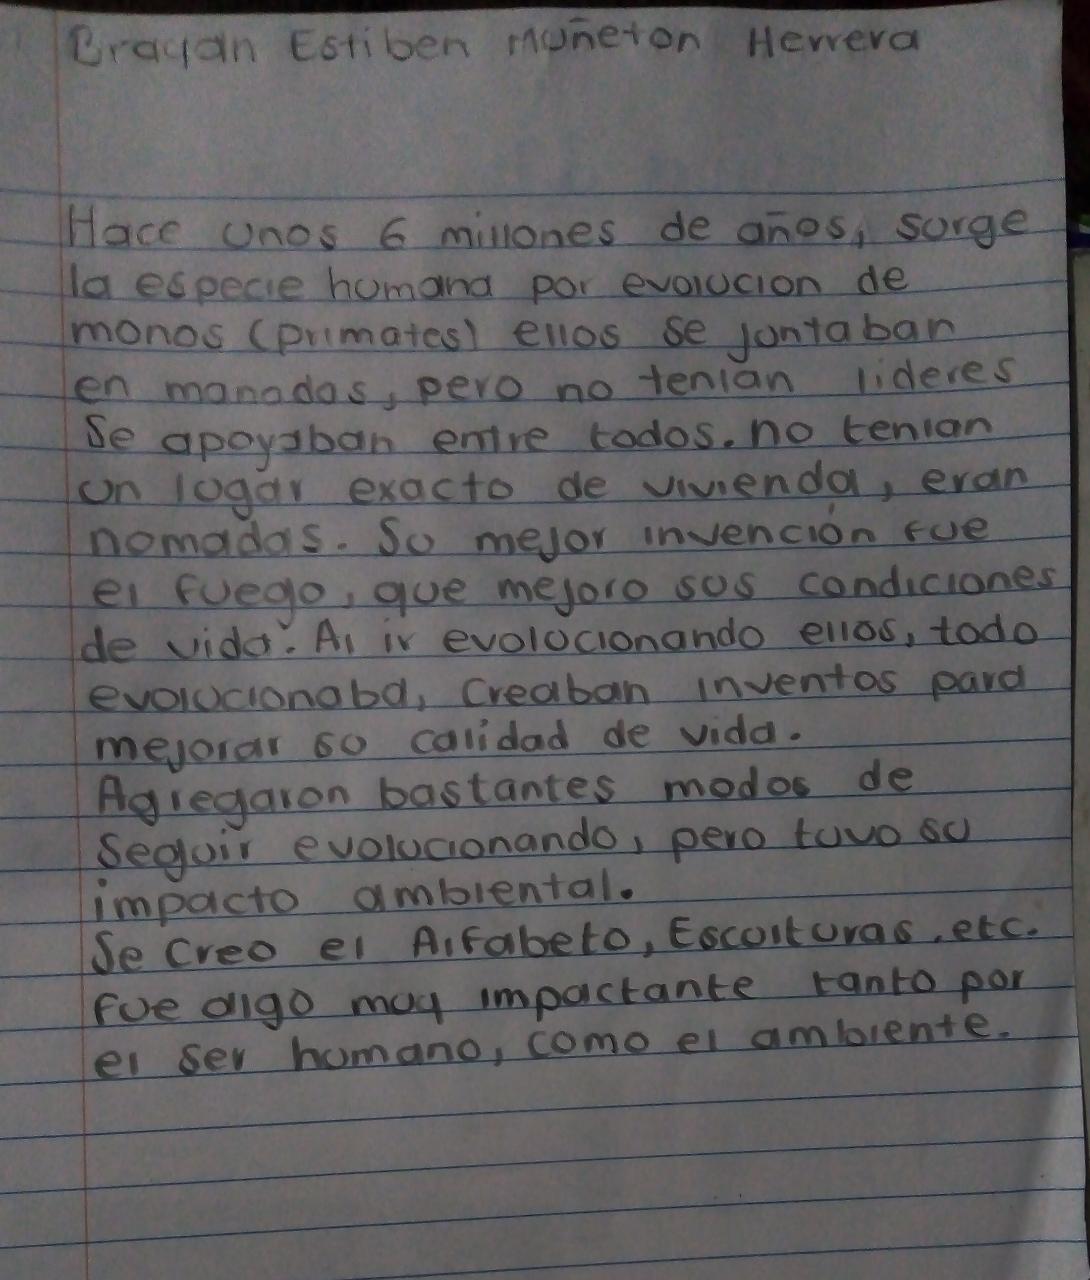 Brayan Estiben Muñeton Herrera
Hace unos 6 millones de años, surge
la especie humana por evolucion de
monos (primates) ellos se juntaban
en manadas, pero no tenian lideres
Se apoyaban entre todos. no tenian
un lugar exacto de vivienda, eran
nomadas. Su mejor invención fue
el fuego, que mejoro sus condiciones
de vida. Al ir evolucionando ellos, todo
evolucionaba, Creaban inventos para
mejorar su calidad de vida.
Agregaron bastantes modos de
Seguir evolucionando, pero tuvo su
impacto ambiental.
Se Creo el Alfabeto, Esculturas, etc.
fue algo muy impactante tanto por
el ser humano, como el ambiente.